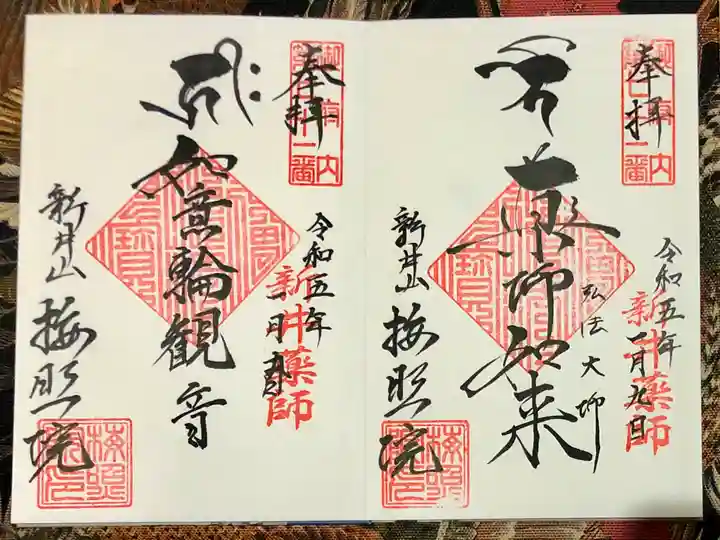 奉拝
令和五年
一月九日
新井薬師
弘法大師
薬師如来
新井山
梅照院
奉拝
令和五年
一月九日
新井薬師
如意輪観音
新井山
梅照院